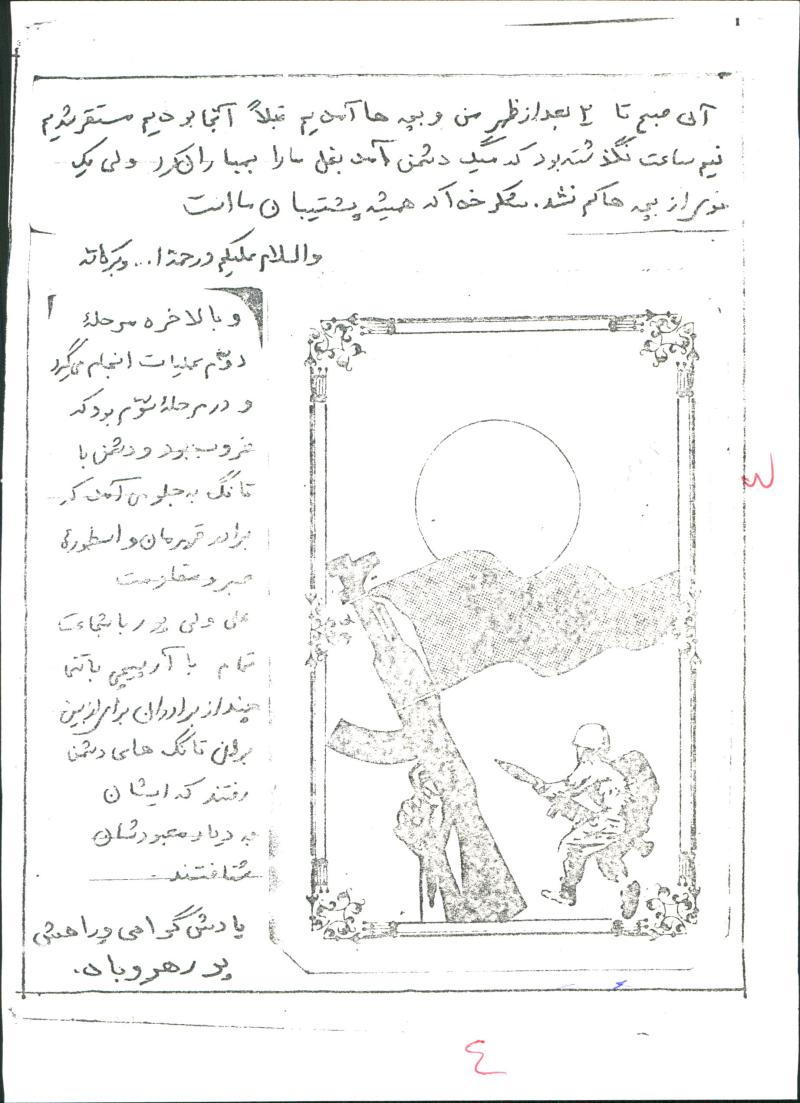 الی صبح تا ۲ بعد از ظهر من و بچه ها آمدیم قبلاً آنجا بودیم مستقر شدیم
نیم ساعت نگذشته بود که میگ دشمن آمد بغل ما را بمباران کرد ولی یک
موی از بچه ها کم نشد. شکر خدا که همیشه پشتیبان ما است
والسلام علیکم و رحمة ا... وبرکاته
و بالاخره مرحلهٔ
دوّم عملیات انجام میگیرد
و در مرحلهٔ سوّم بود که
غروب بود و دشمن با
تانک به جلو می آمد که
برادر قهرمان و اسطورهٔ
صبر و مقاومت
علی ولی پور با شجاعت
تمام با آرپیچی با تنی
چند از برادران برای از بین
بردن تانک های دشمن
رفتند که ایشان
به دیدار معبودشان
شتافتند
یادش گرامی و راهش
پر رهرو باد.
س
٤